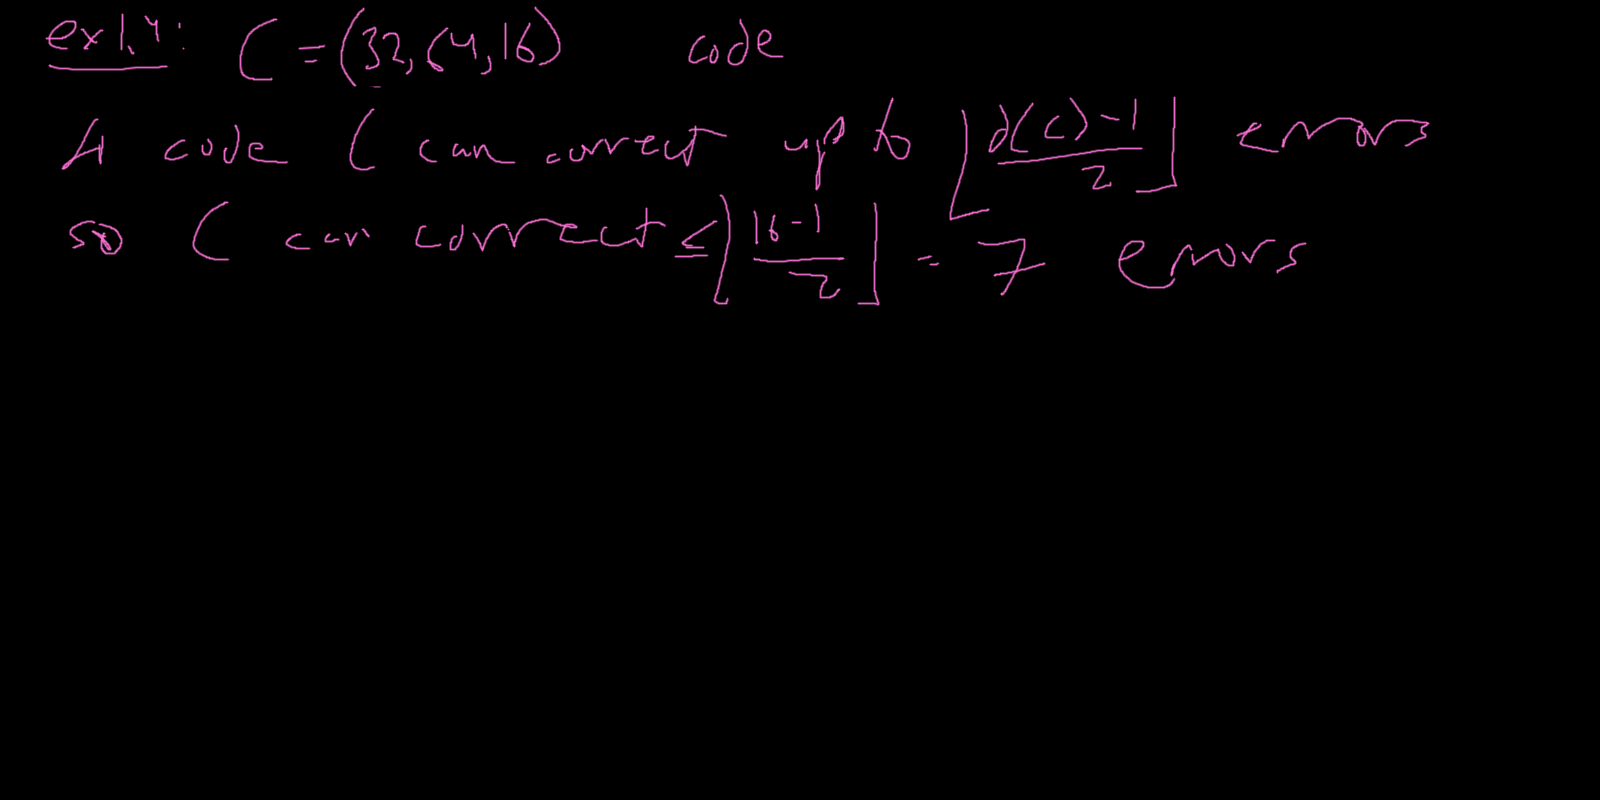 ex1.4: C = (32,64,16) code
A code C can correct up to ⌊(d(C)-1)/2⌋ errors
so C can correct ≤ ⌊(16-1)/2⌋ = 7 errors